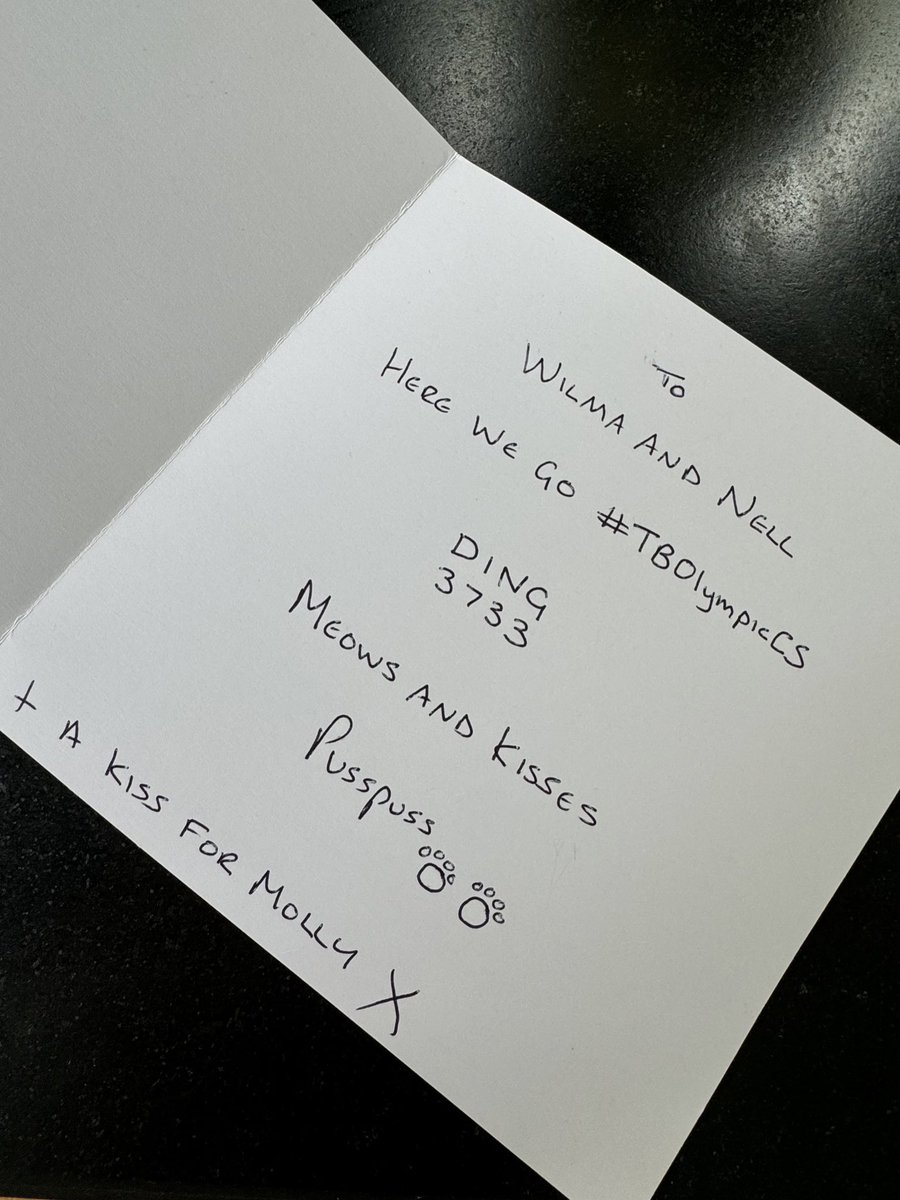 To
Wilma And Nell
Here We Go #TBOlympicCS
DING
3733
Meows and Kisses
Pusspuss
+ A Kiss For Molly X